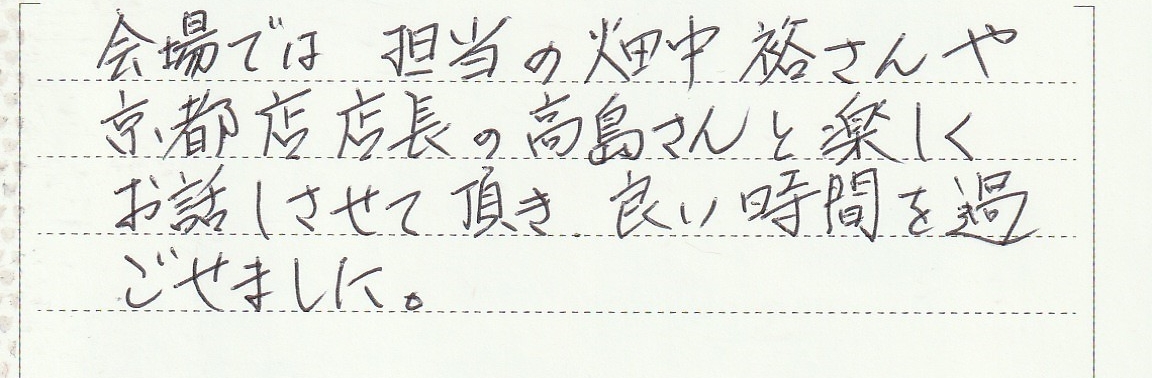 会場では 担当の畑中 裕さんや
京都店店長の高島さんと楽しく
お話しさせて頂き、良い時間を過
ごせました。